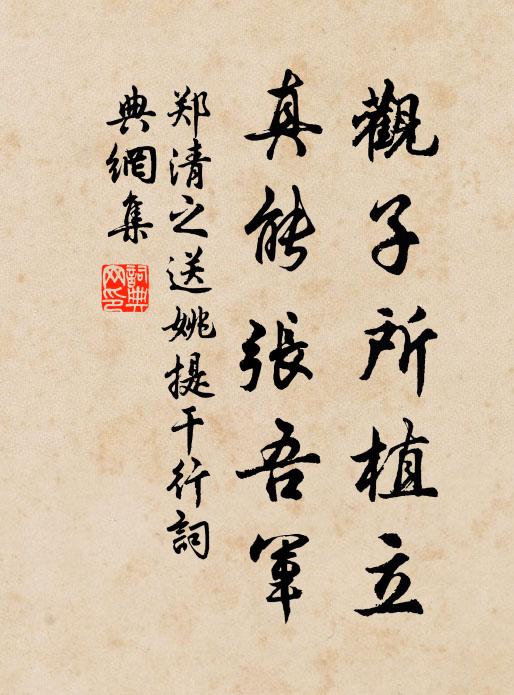 觀子所植立
真能張吾軍
郑清之送姚提干行詞
典網集
詞典网印